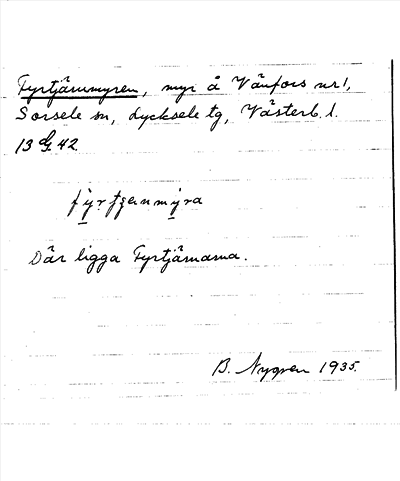 Fyrtjärnmyren, myr å Vänfors nr 1,
Sorsele sn, Lycksele tg, Västerb. l.
13 G 42
Där ligga Fyrtjärnarna.
B. Nygren 1935.